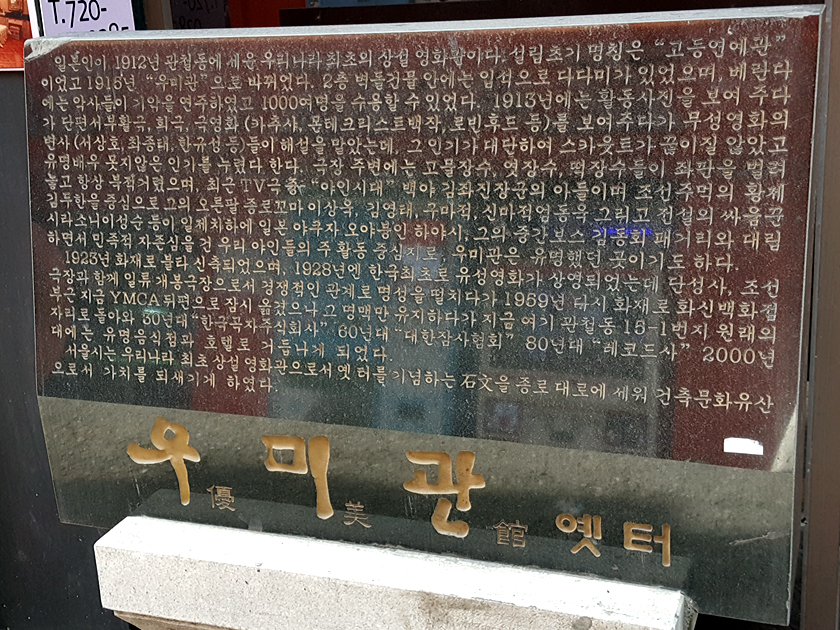 T.720-
일본인이 1912년 관철동에 세운 우리나라 최초의 상설 영화관이다. 설립초기 명칭은 "고등연예관"
이었고 1915년 "우미관"으로 바뀌었다. 2층 벽돌건물 안에는 일석으로 다다미가 있었으며, 베란다
에는 악사들이 기악을 연주하였고 1000여명을 수용할 수 있었다. 1913년에는 활동사진을 보여 주다
가 단편서부활극, 희극, 극영화 (카추사, 몬테크리스트백작, 로빈후드 등)를 보여주다가 무성영화의
변사 (서상호, 최종태, 한규성 등)들이 해설을 맡았는데, 그 인기가 대단하여 스카웃트가 끊이질 않았고
유명배우 못지않은 인가를 누렸다 한다. 극장 주변에는 고물장수, 엿장수, 떡장수들이 좌판을 벌려
놓고 항상 북적거렸으며, 최근 TV극 중 "야인시대" 백야 김좌진장군의 아들이며 조선주먹의 황체
김두한을 중심으로 그의 오른팔 종로꼬마 이상욱, 김영태, 구마적, 신마적엄동욱 그리고 전설의 싸움꾼
시라소니이성순 등이 일제치하에 일본 야쿠자 오야붕인 하야시, 그의 중간보스 김동화 패거리와 대립
하면서 민족적 자존심을 건 우리 야인들의 주 활동 중심지로, 우미관은 유명했던 곳이기도 하다.
1923년 화재로 불타 신축되었으며, 1928년엔 한국최초로 유성영화가 상영되었는데 단성사, 조선
극장과 함께 일류개봉극장으로서 경쟁적인 관계로 명성을 떨치다가 1959년 다시 화재로 화신백화점
부근 지금 YMCA 뒤편으로 잠시 옮겼으나 그 명맥만 유지하다가 지금 여기 관철동 15-1번지 원래의
자리로 돌아와 50년대 "한국곡자주식회사" 60년대 "대한잠사협회" 80년대 "레코드사" 2000년
대에는 유명음식점과 호텔로 거듭나게 되었다.
서울시는 우리나라 최초 상설 영화관으로서 옛터를 기념하는 石文을 종로 대로에 세워 건축문화유산
으로서 가치를 되새기게 하였다.
우優미美관館 옛터